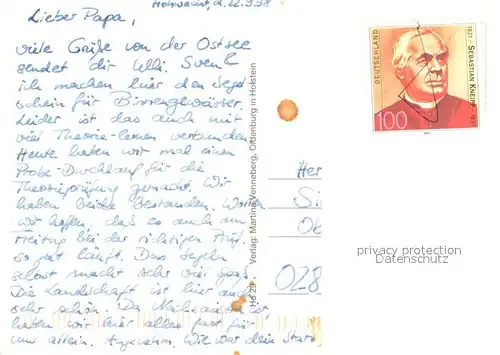 Hohwacht, d. 22.9.98
Lieber Papa,
viele Grüße von der Ostsee
sendet dir Ulli. Sven &
ich machen hier den Segel
schein für Binnengewässer.
Leider ist das auch mit
viel Theorie-lernen verbunden.
Heute haben wir mal einen
Probe-Durchlauf für die
Theorieprüfung gemacht. Wir
haben beide bestanden.
Wir hoffen, daß es auch am
Freitag bei der richtigen Prüf.
so gut läuft. Das Segeln
selbst macht sehr viel Spaß.
Die Landschaft ist hier auch
sehr schön. Da Nachsaison ist
haben wir hier alles fast für
uns allein. Angenehm. Wie war dein Start
He 29 Verlag: Martina Venneberg, Oldenburg in Holstein
DEUTSCHLAND
1821 - SEBASTIAN KNEIPP - 1897
100
Her
Si
028
privacy protection
Datenschutz